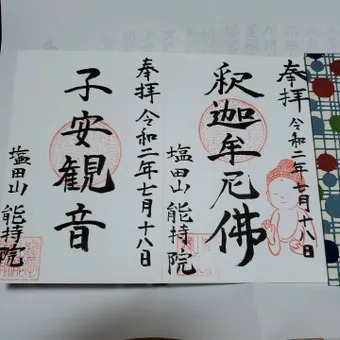 奉拝 令和二年七月十八日
釈迦牟尼佛
塩田山 能持院
奉拝 令和二年七月十八日
子安観音
塩田山 能持院